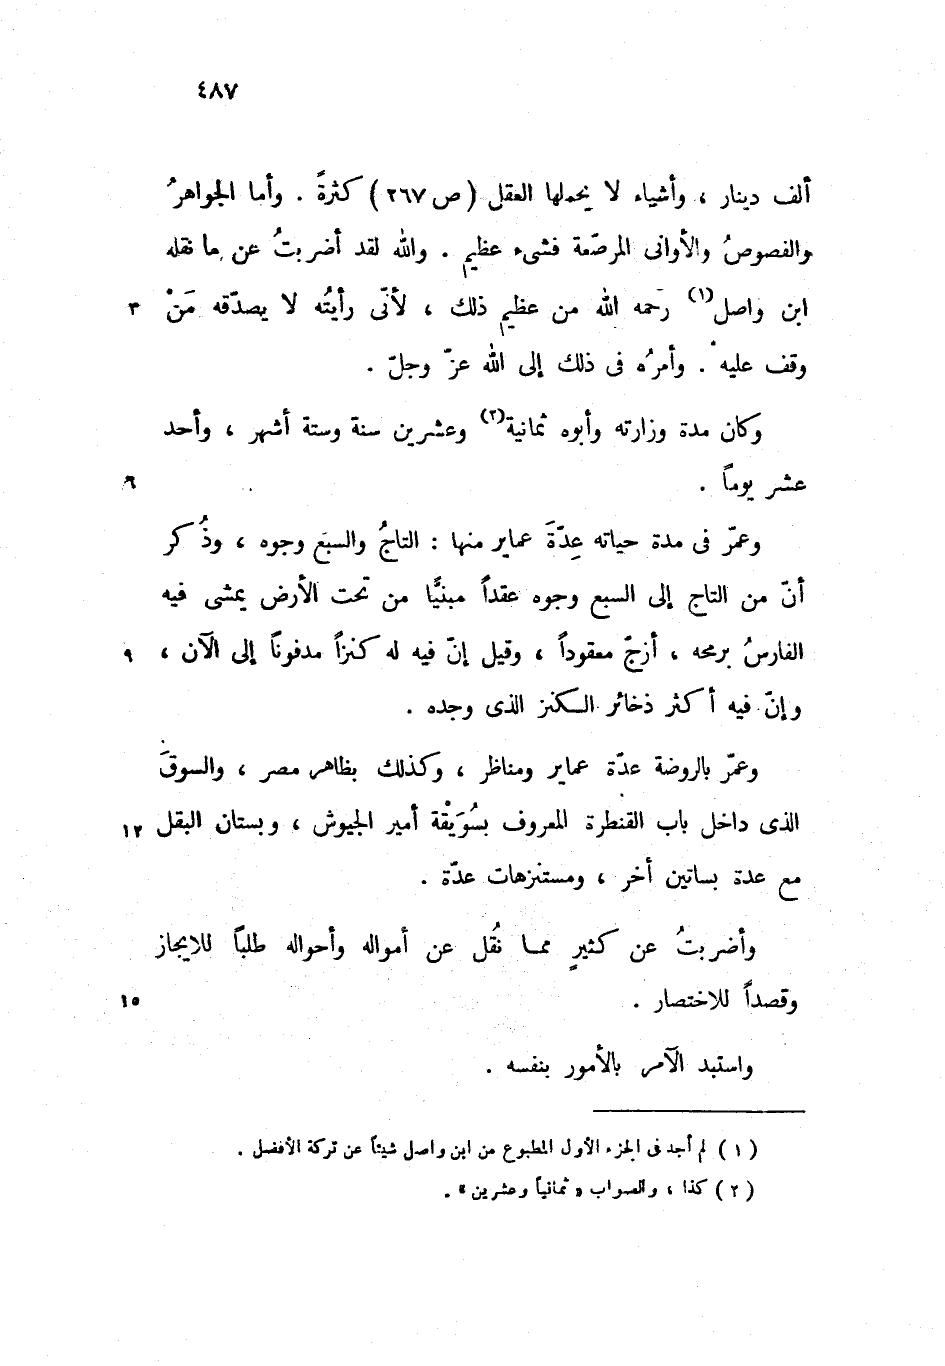 ٤٨٧
ألف دينار ، وأشياء لا يحملها العقل ( ص ٢٦٧ ) كثرةً . وأما الجواهرُ
والفصوصُ والأوانى المرصّعة فشىء عظيم . والله لقد أضربتُ عن ما نقله
ابن واصل(١) رحمه الله من عظيم ذلك ، لأنّى رأيتُه لا يصدّقه مَنْ ٣
وقف عليه . وأمرُه فى ذلك إلى الله عزّ وجلّ .
وكان مدة وزارته وأبوه ثمانية(٢) وعشرين سنة وستة أشهر ، وأحد
عشر يوماً . ٦
وعمّر فى مدة حياته عِدّةَ عماير منها : التاجُ والسبع وجوه ، وذُكر
أنّ من التاج إلى السبع وجوه عقداً مبنيًّا من تحت الأرض يمشى فيه
الفارسُ برمحه ، أزجّ معقوداً ، وقيل إنّ فيه له كنزاً مدفونًا إلى الآن ، ٩
وإنّ فيه أكثر ذخائر الكنز الذى وجده .
وعمّر بالروضة عدّة عماير ومناظر ، وكذلك بظاهر مصر ، والسوقَ
الذى داخل باب القنطرة المعروف بسُوَيْقة أمير الجيوش ، وبستان البقل ١٢
مع عدة بساتين أخر ، ومستنزهات عدّة .
وأضربتُ عن كثيرٍ مما نُقل عن أمواله وأحواله طلبًا للايجاز
وقصداً للاختصار . ١٥
واستبد الآمر بالأمور بنفسه .
( ١ ) لم أجد فى الجزء الأول المطبوع من ابن واصل شيئاً عن تركة الأفضل .
( ٢ ) كذا ، والصواب « ثمانياً وعشرين » .